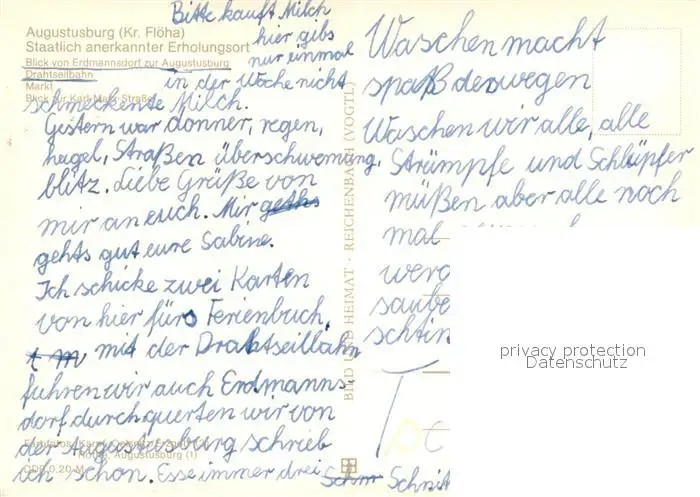 Bitte kauft Milch
hier gibs
nur einmal
in der Woche nicht
schmeckente Milch.
Gestern war donner, regen,
hagel, Straßen überschwemung,
blitz. Liebe Grüße von
mir an euch. Mir geths
gehts gut eure Sabine.
Ich schicke zwei Karten
von hier fürs Ferienbuch,
mit der Drahtseilbahn
fuhren wir auch Erdmanns-
dorf durchquerten wir von
der Augustusburg schrieb
ich schon. Esse immer drei Schnr Schnit
Augustusburg (Kr. Flöha)
Staatlich anerkannter Erholungsort
Blick von Erdmannsdorf zur Augustusburg
Drahtseilbahn
Markt
Blick zur Karl-Marx-Straße
Augustusburg (1)
BILD UND HEIMAT · REICHENBACH (VOGTL)
Waschen macht
spaß deswegen
Waschen wir alle, alle
Strümpfe und Schlüpfer
müßen aber alle noch
mal
werd
saube
schin
privacy protection
Datenschutz